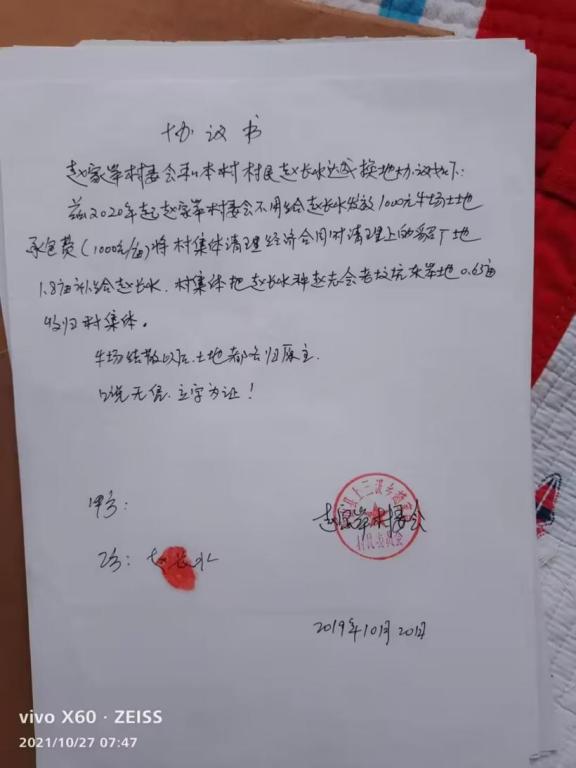 协议书
赵家岸村委会和本村村民赵长水达成换地协议如下:
兹2020年起赵家岸村委会不用给赵长水发放1000元牛场土地
承包费(1000元/亩)将村集体清理经济合同时清理上的 地
1.8亩补给赵长水、村集体把赵长水种赵志会老坟坑东岸地0.65亩
收归村集体。
牛场结散以后、土地都各归原主.
口说无信.立字为证!
甲方:
赵家岸村委会
县上三汲乡赵家
村民委员会
乙方: 赵长水
2019年10月20日
vivo X60 · ZEISS
2021/10/27 07:47